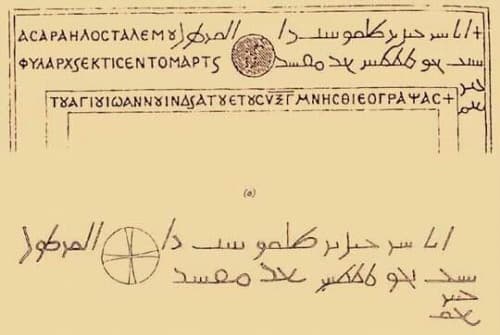 ΑCΑΡΑΗΛΟCΤΑΛΕΜȢ
ΦΥΛΑΡΧSΕΚΤΙCΕΝΤΟΜΑΡΤS
+ انا شرحيل بر ظلمو بنيت ذا المرطول
سنت بعد مفسد
خيبر
بعم
ΤȢΑΓΙȢΙΩΑΝΝȢΙΝΔSΑΤȢΕΤȢCΥΞΓΜΝΗCΘΙΕΟΓΡΑΨΑC+
(a)
انا شرحيل بر ظلمو بنيت ذا المرطول
سنت بعد مفسد
خيبر
بعم